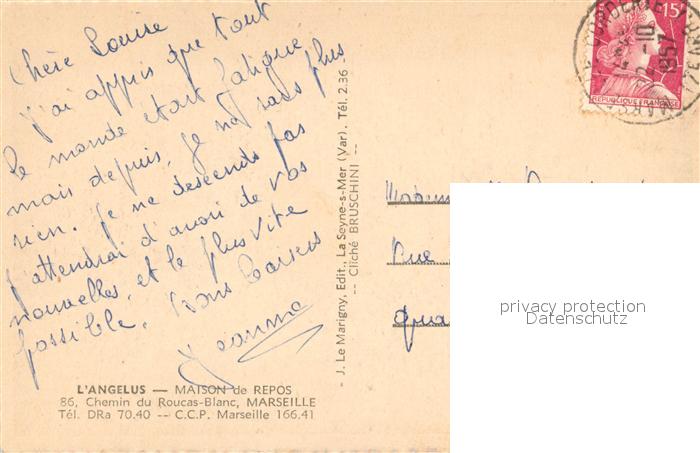 Chère Louise
J'ai appris que tout
le monde était fatigué
mais depuis, je ne sais plus
rien. Je ne descends pas
j'attendrai d'avoir de vos
nouvelles, et le plus vite
possible. Bons baisers
Jeanne
L'ANGELUS — MAISON de REPOS
86, Chemin du Roucas-Blanc, MARSEILLE
Tél. DRa 70.40 -- C.C.P. Marseille 166.41
-- J. Le Marigny, Edit., La Seyne-s-Mer (Var). Tél. 2.36 --
-- Cliché BRUSCHINI --
15F
REPUBLIQUE FRANÇAISE
10
1957
Rue
privacy protection
Datenschutz